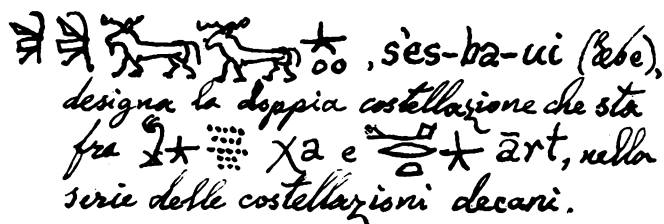 , šes-ba-ui (),
designa la doppia costellazione che sta
fra χa e ārt, nella
serie delle costellazioni decani.